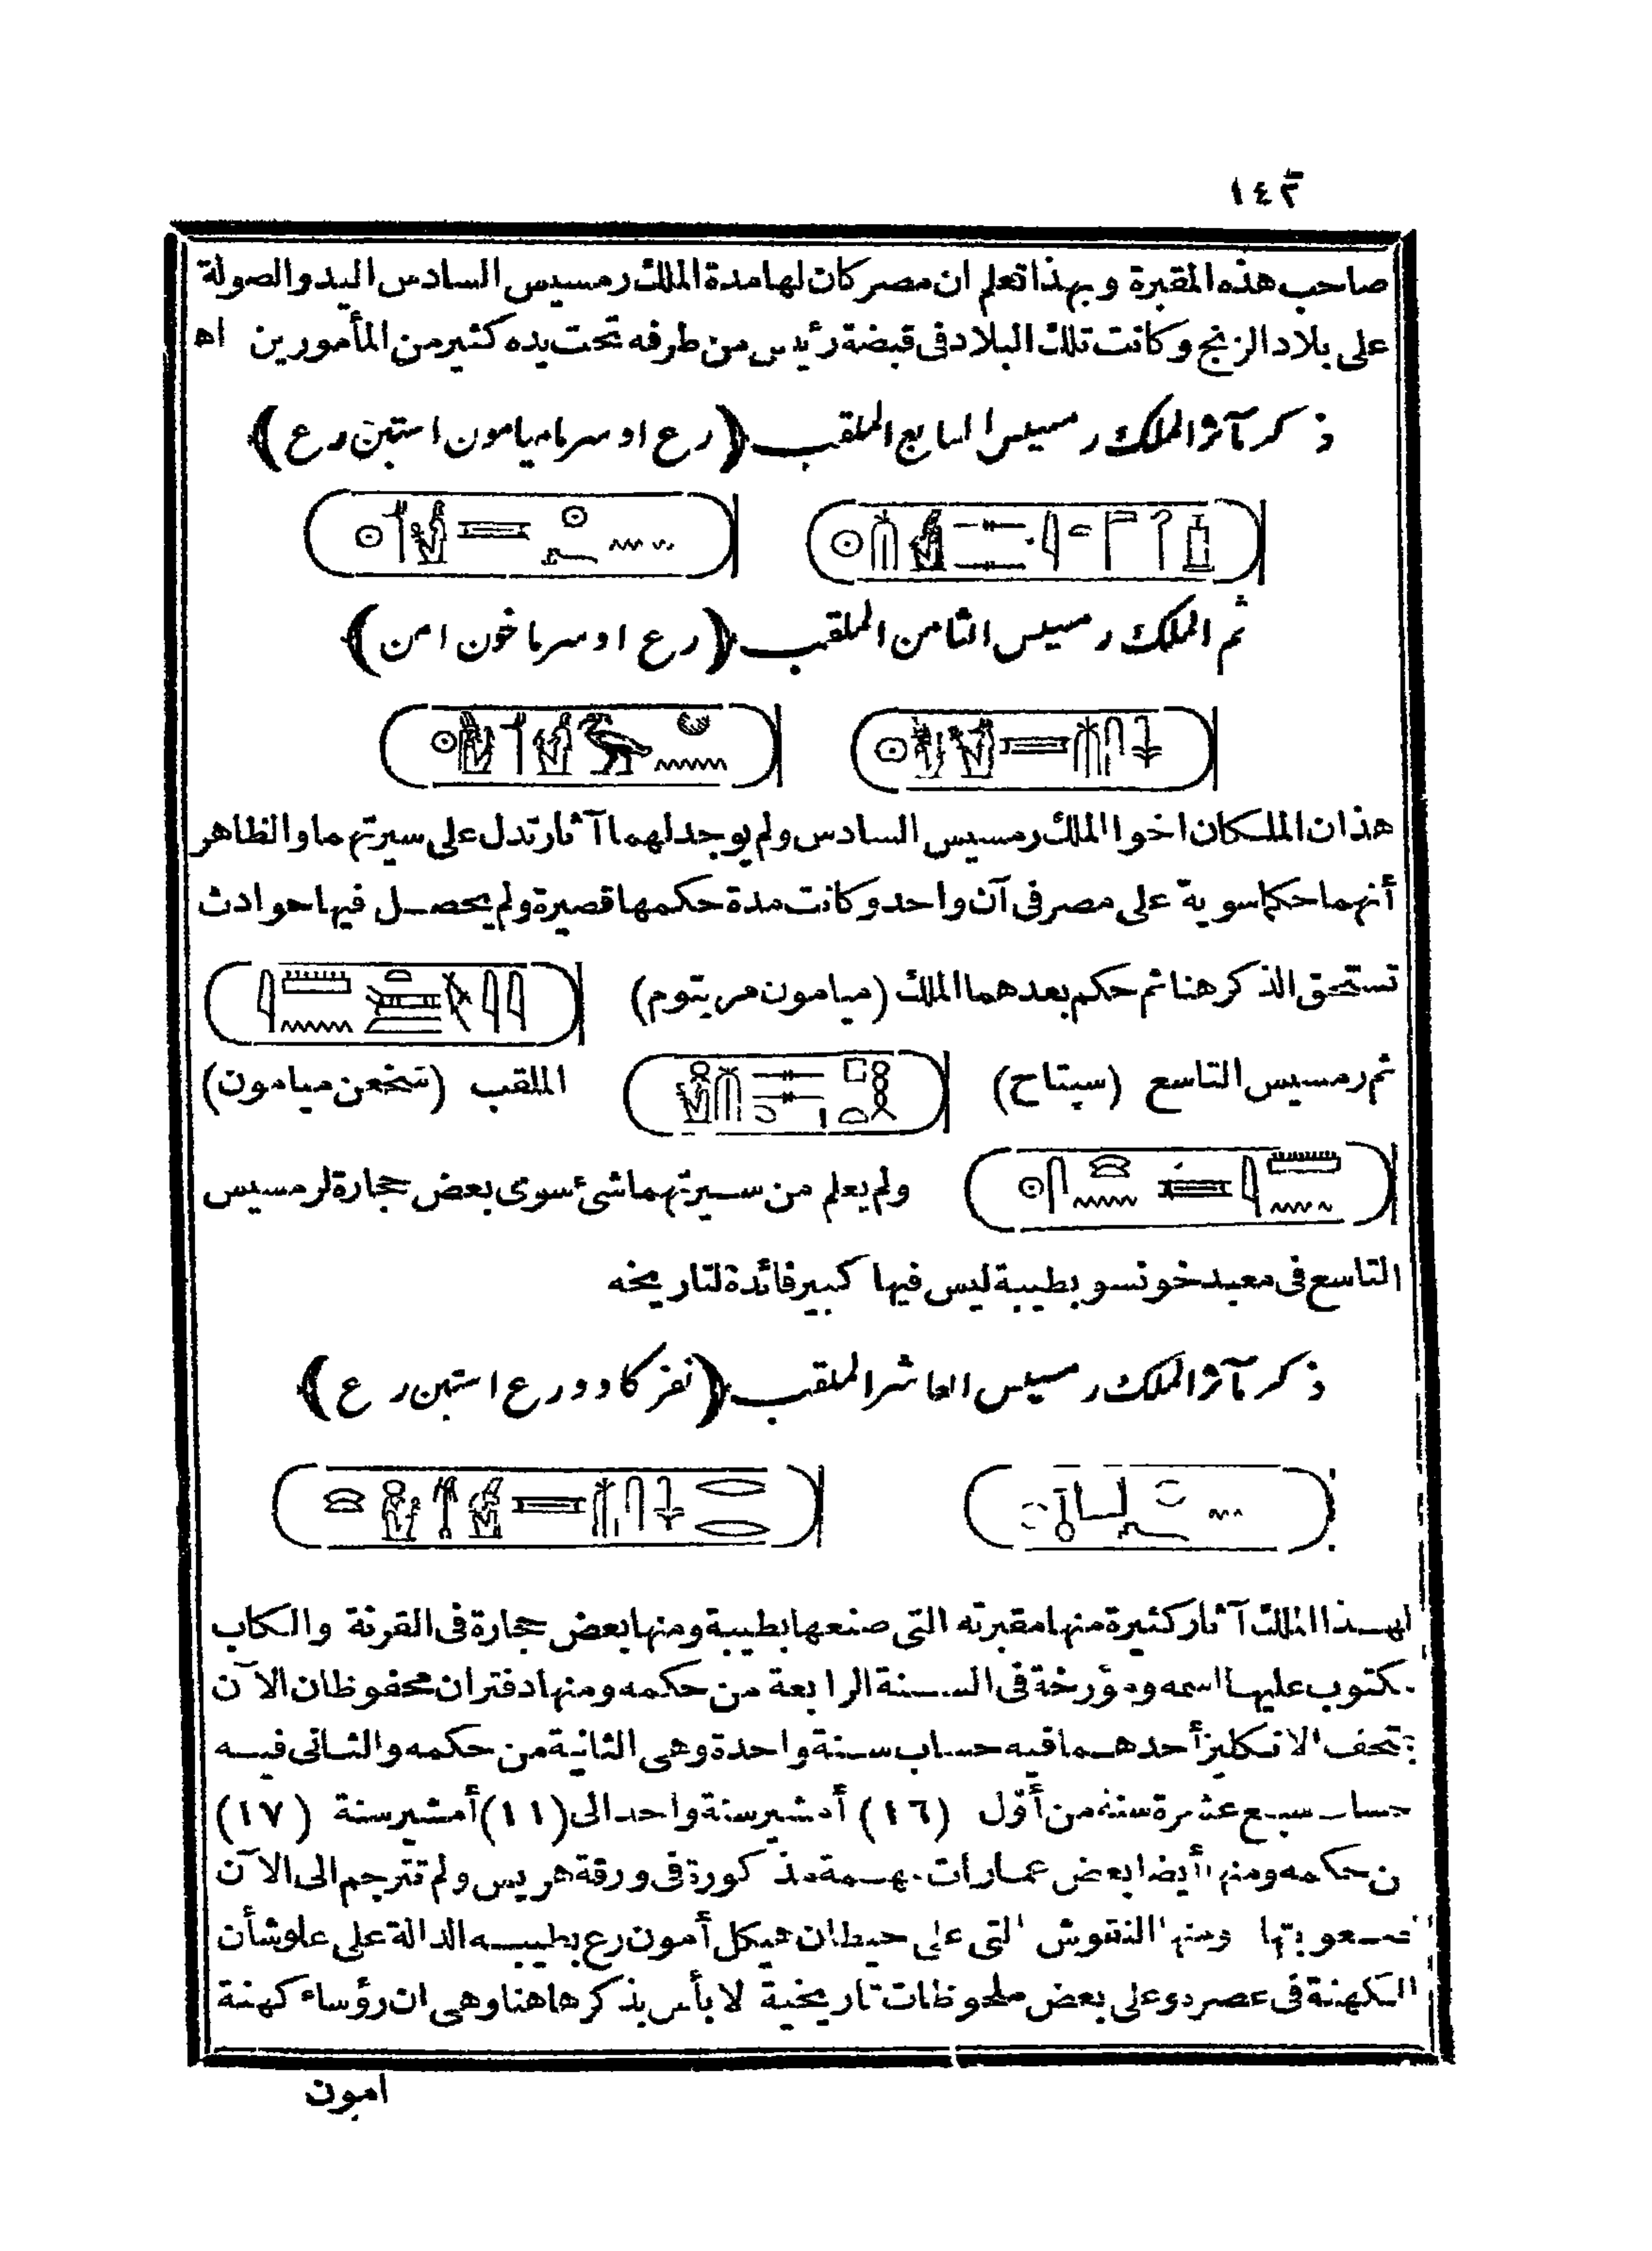 ١٤٢
صاحب هذه المقبرة وبهذا تعلم ان مصر كان لها مدة الملك رمسيس السادس اليد والصولة
على بلاد الزنج وكانت تلك البلاد فى قبضة رئيس من طرفه تحت يده كثير من المأمورين اه
ذكر مآثر الملك رمسيس السابع الملقب (رع اوسرما ميامون استبن رع)
ثم الملك رمسيس الثامن الملقب (رع اوسرما خون امن)
هذان الملكان اخوا الملك رمسيس السادس ولم يوجد لهما آثار تدل على سيرتهما والظاهر
أنهما حكما سوية على مصر فى آن واحد وكانت مدة حكمها قصيرة ولم يحصل فيها حوادث
تستحق الذكر هنا ثم حكم بعدهما الملك (ميامون مريتوم)
ثم رمسيس التاسع (سپتاح) الملقب (سخعن ميامون)
ولم يعلم من سيرتهما شئ سوى بعض حجارة لرمسيس
التاسع فى معبد خونسو بطيبة ليس فيها كبير فائدة لتاريخه
ذكر مآثر الملك رمسيس العاشر الملقب (نفر كاوو رع استبن رع)
لهذا الملك آثار كثيرة منها مقبرته التى صنعها بطيبة ومنها بعض حجارة فى القرنة والكاب
مكتوب عليها اسمه ومؤرخة فى السنة الرابعة من حكمه ومنها دفتران محفوظان الآن
بتحف الانكليز أحدهما فيه حساب سنة واحدة وهى الثانية من حكمه والثانى فيه
حساب سبع عشرة سنة من أوّل (١٦) أمشير سنة واحد الى (١١) أمشير سنة (١٧)
من حكمه ومنها أيضا بعض عمارات مهمة مذكورة فى ورقة هريس ولم تترجم الى الآن
لصعوبتها ومنها النقوش التى على حيطان هيكل أمون رع بطيبه الدالة على علو شأن
الكهنة فى عصره وعلى بعض ملحوظات تاريخية لا بأس بذكرها هنا وهى ان رؤساء كهنة
امون